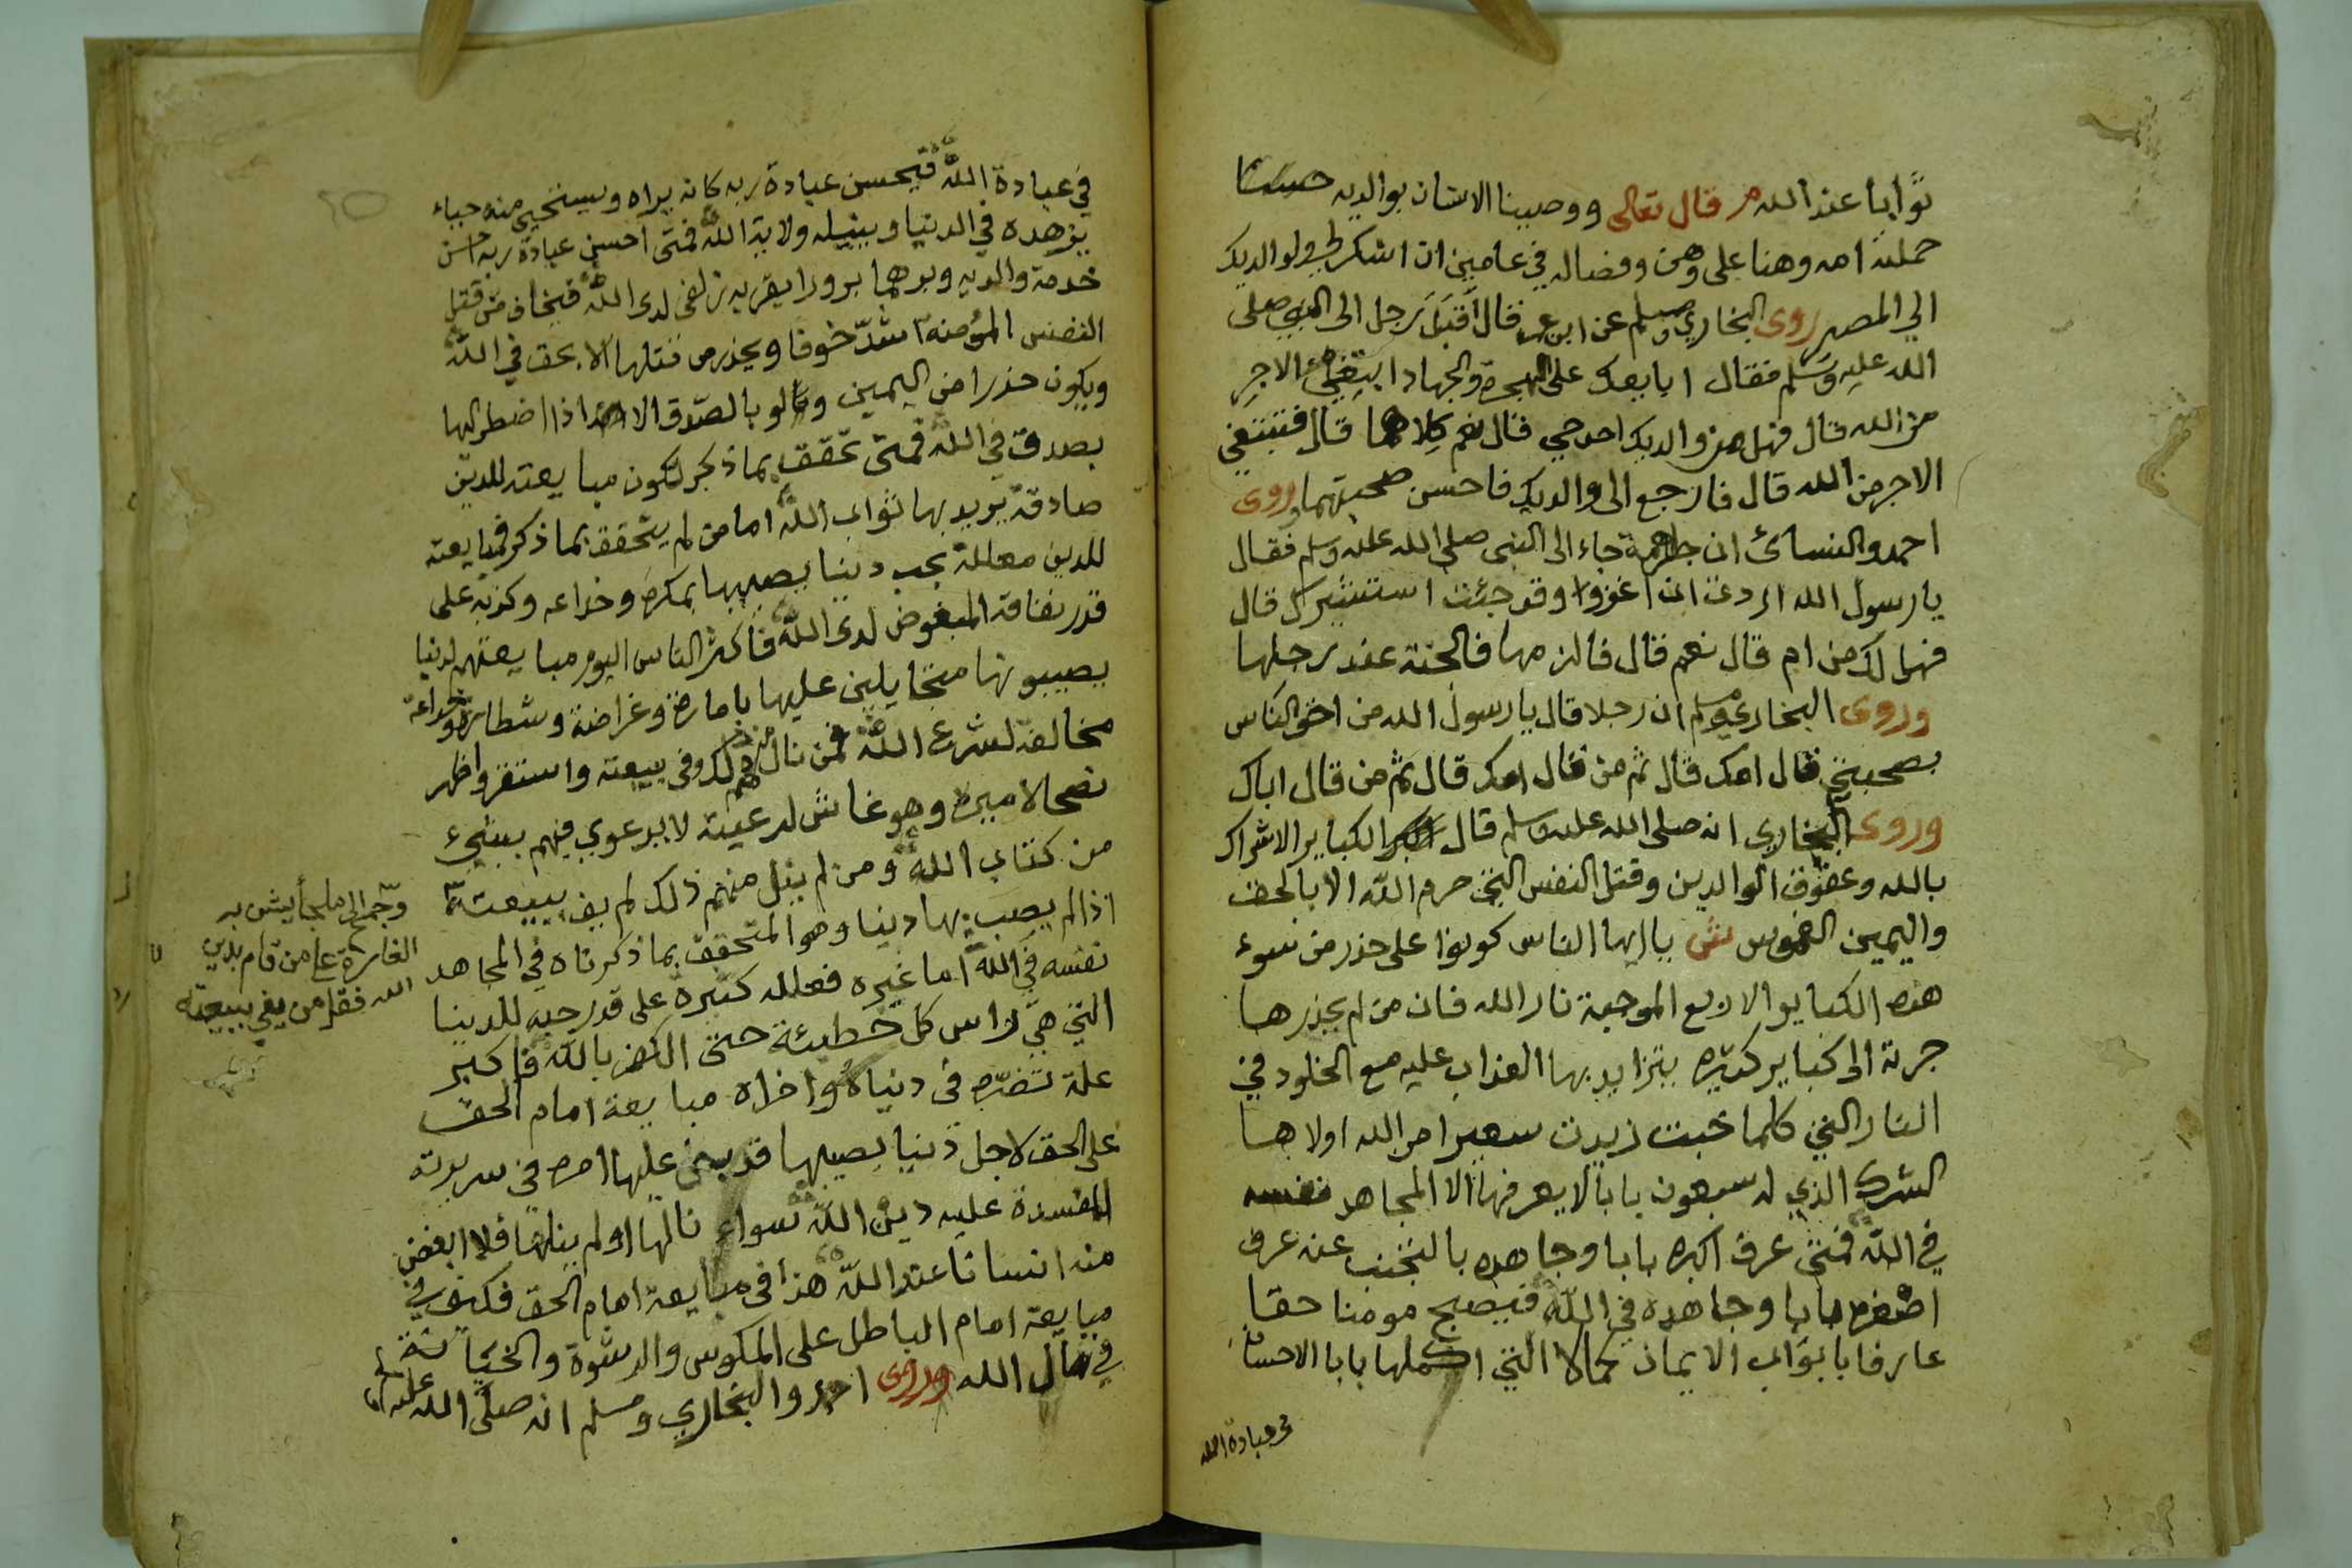 ثوابا عند الله م قال تعالى ووصينا الانسان بوالديه حسنا
حملته امه وهنا على وهن وفصاله في عامين ان اشكر لي ولوالديك
الي المصير روى البخاري ومسلم عن ابن عمر قال اقبل رجل الى النبي صلى
الله عليه وسلم فقال ابايعك على الهجرة والجهاد ابتغي الاجر
من الله قال فهل من والديك احد حي قال نعم كلاهما قال فتبتغي
الاجر من الله قال فارجع الى والديك فاحسن صحبتهما وروى
احمد والنسائ ان جاهمة جاء الى النبي صلى الله عليه وسلم فقال
يا رسول الله اردت ان اغزوا وقد جئت استشيرك قال
فهل لك من ام قال نعم قال فالزمها فالجنة عند رجلها
وروى البخاري ومسلم ان رجلا قال يا رسول الله من احق الناس
بصحبتي قال امك قال ثم من قال امك قال ثم من قال اباك
وروى البخاري انه صلى الله عليه وسلم قال الكباير الاشراك
بالله وعقوق الوالدين وقتل النفس التي حرم الله الا بالحق
واليمين الغموس ش يا ايها الناس كونوا على حذر من سوء
هذه الكباير الاربع الموجبة نار الله فان من لم يحذرها
جرته الى كباير كثيره يتزايد بها العذاب عليه مع الخلود في
النار التي كلما خبت زيدت سعيرا من الله اولاها
الشرك الذي له سبعون بابا لا يعرفها الا المجاهد نفسه
في الله فمتى عرف اكبره بابا وجاهده بالتجنب عنه عرف
اصغره بابا وجاهده في الله فيصبح مومنا حقا
عارفا بابواب الايمان كمالا التي اكملها بابا الاحسان
في عبادة الله
في عبادة الله فيحسن عبادة ربه كانه يراه ويستحيي منه حياء
يزهده في الدنيا وينيله ولاية الله فمتى احسن عبادة ربه احسن
خدمة والديه وبرهما برورا يقربه زلفى لدى الله فيخاف من قتل
النفس المؤمنة اشدّ خوفا ويحذر من قتلها الا بحق في الله
ويكون حذرا من اليمين ولو بالصدق الا اذا اضطر اليها
بصدق في الله فمتى تحقق بما ذكر تكون مبايعته للدين
صادقة يريد بها ثواب الله اما من لم يتحقق بما ذكر فمبايعته
للدين معللة بحب دنيا يصيبها بمكره وخداعه وكذبه على
قدر نفاقه المبغوض لدى الله فاكثر الناس اليوم مبايعتهم لدنيا
يصيبونها متحايلين عليها بامارة وغراضة وشطارة وخداعة
مخالفة لشرع الله فمن نال منهم ذلك وفى بيعته واستقر واظهر
نصحا لاميره وهو غاش لرعيته لا يرعوي فيهم بشيء
من كتاب الله ومن لم ينل منهم ذلك لم يف ببيعته
اذا لم يصب بها دنيا وهو المتحقق بما ذكرناه في المجاهد
نفسه في الله اما غيره فعلله كثيرة على قدر حبه للدنيا
التي هي راس كل خطيئة حتى الكفر بالله فاكبر
علة تضره في دنياه واخراه مبايعة امام الحق
على الحق لاجل دنيا يصيبها قد بنى عليها امره في سريرته
المفسدة عليه دين الله سواء نالها او لم ينلها فلا ابغض
منه انسانا عند الله هذا في مبايعة امام الحق فكيف في
مبايعة امام الباطل على المكوس والرشوة والخيانة
في مال الله وروى احمد والبخاري ومسلم انه صلى الله عليه
الغابرة عامن قام بدين
الله فقل من يفي ببيعته